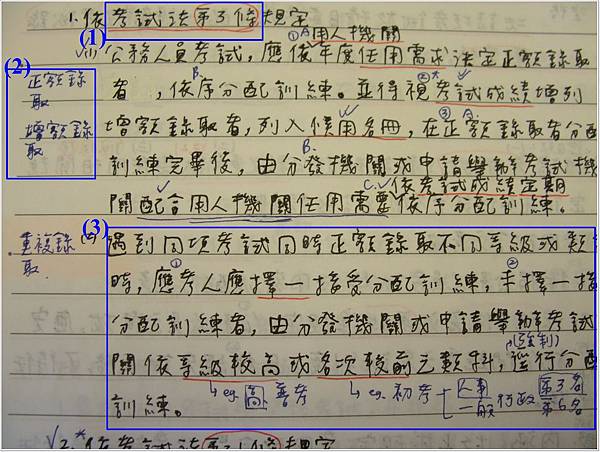 1. 依考試法第3條規定
(1)
①A用人機關
(1) 公務人員考試，應依年度任用需求決定正額錄取
(2)
正額錄取
增額錄取
者，依序分配訓練。並得視考試成績增列
B.
②*
增額錄取者，列入候用名冊，在正額錄取者分配
③A
訓練完畢後，由分發機關或申請舉辦考試機
B.
C.依考試成績定期
關配合用人機關任用需要依序分配訓練。
(3)
重複錄取.
遇到同項考試同時正額錄取不同等級或類科
時，應考人應擇一接受分配訓練，未擇一接
① ②
分配訓練者，由分發機關或申請舉辦考試
(強制)
關依等級較高或名次較前之類科，逕行分配
訓練。
↳eg. 高.普考
↳eg. 初考
人事 第3名
一般行政 第6名
√2.*依考試法第 條規定